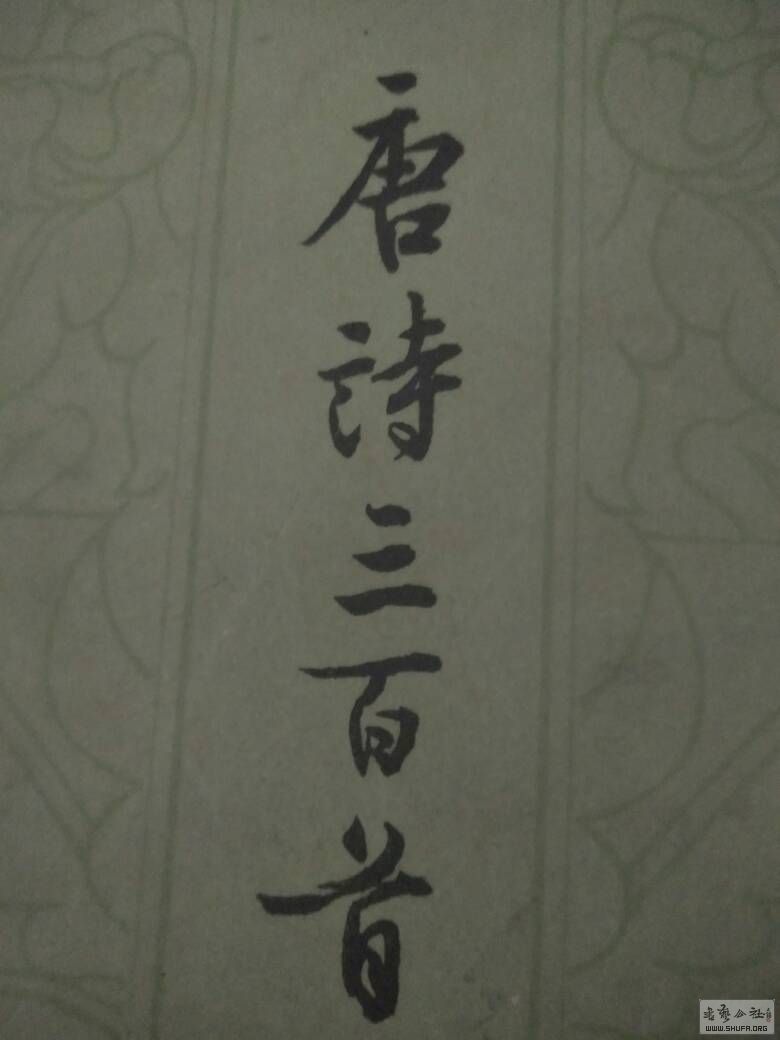 唐詩三百首
书艺公社
WWW.SHUFA.ORG